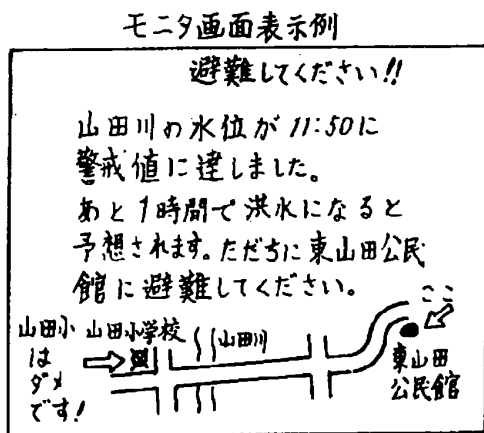 モニタ画面表示例
避難してください!!
山田川の水位が11:50に
警戒値に達しました。
あと1時間で洪水になると
予想されます。ただちに東山田公民
館に避難してください。
ここ
山田小
は
ダメ
です!
山田小学校
山田川
東山田
公民館